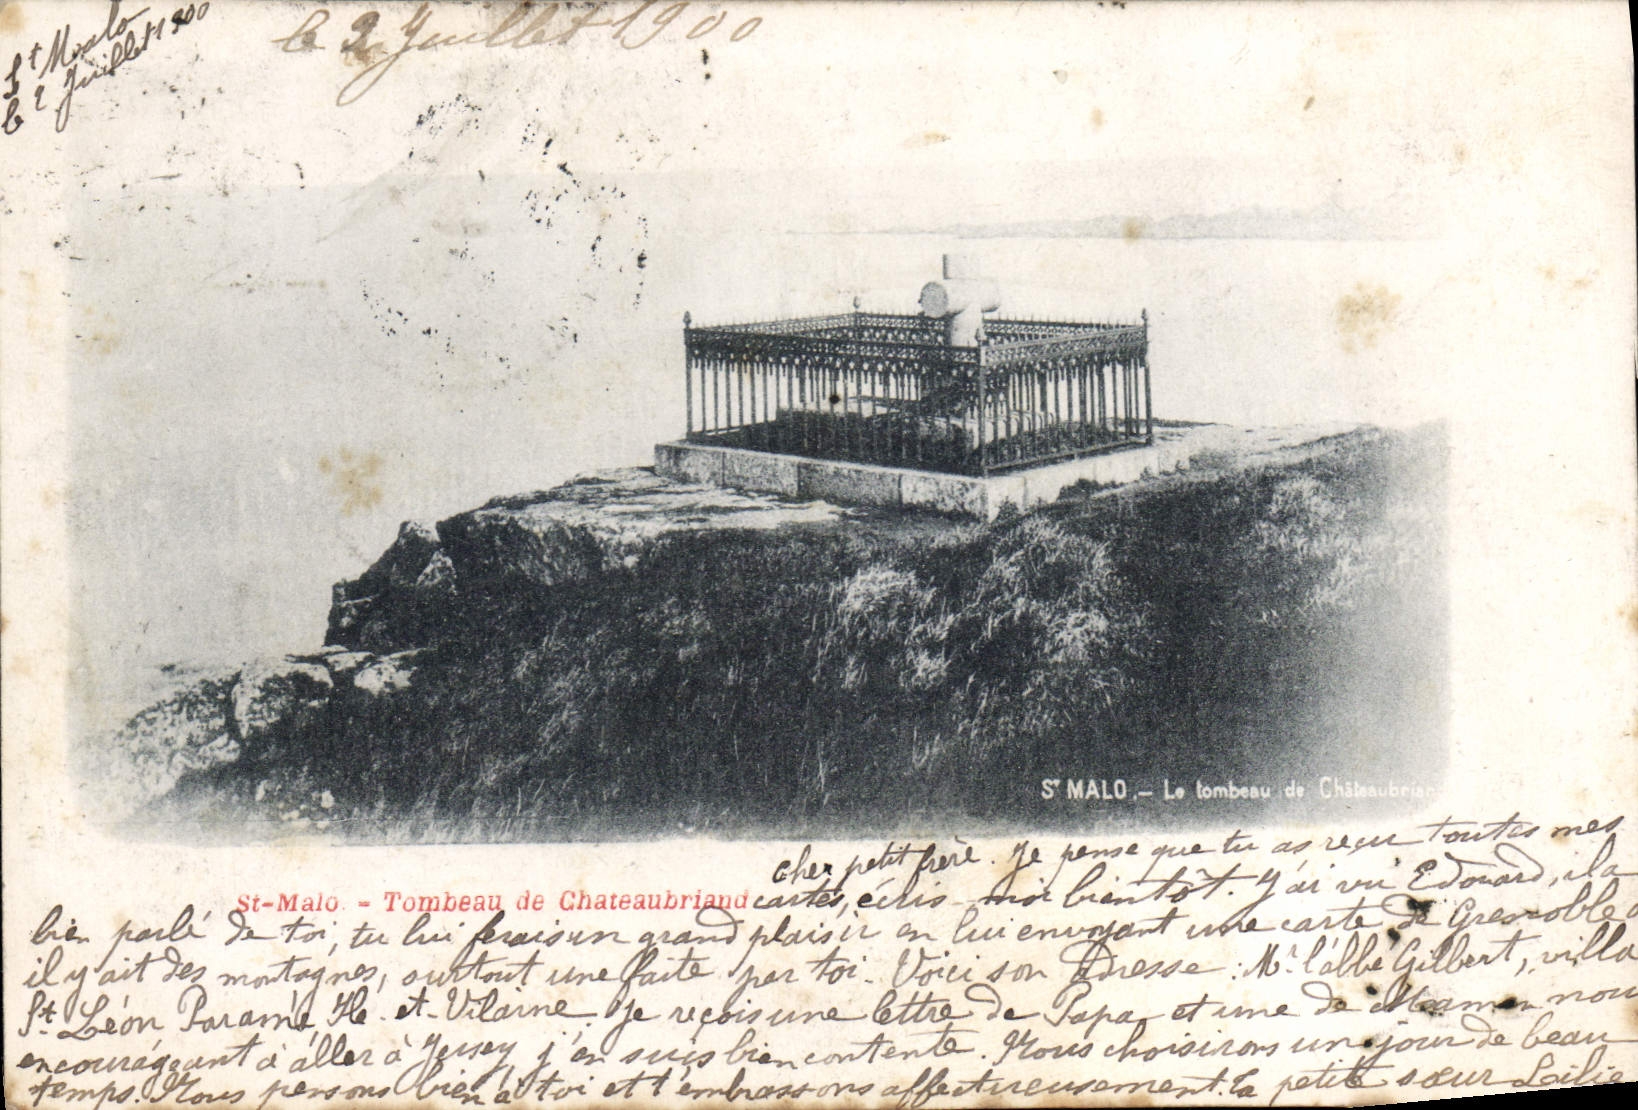 St Malo
le 2 Juillet 1900
le 2 Juillet 1900
ST MALO. - Le tombeau de Châteaubrian
St-Malo - Tombeau de Chateaubriand
cher petit frère. Je pense que tu as reçu toutes mes
cartes, écris-moi bientôt. J'ai vu Edouard, il a
bien parlé de toi, tu lui ferais un grand plaisir en lui envoyant une carte de Grenoble
il y ait des montagnes, surtout une faite par toi. Voici son adresse : Mr l'abbé Gilbert, villa
St Léon Paramé, Ile-et-Vilaine. Je reçois une lettre de Papa et une de Maman nou
encourageant à aller à Jersey, j'en suis bien contente. Nous choisirons un jour de beau
temps. Nous pensons bien à toi et t'embrassons affectueusement. Ta petite sœur